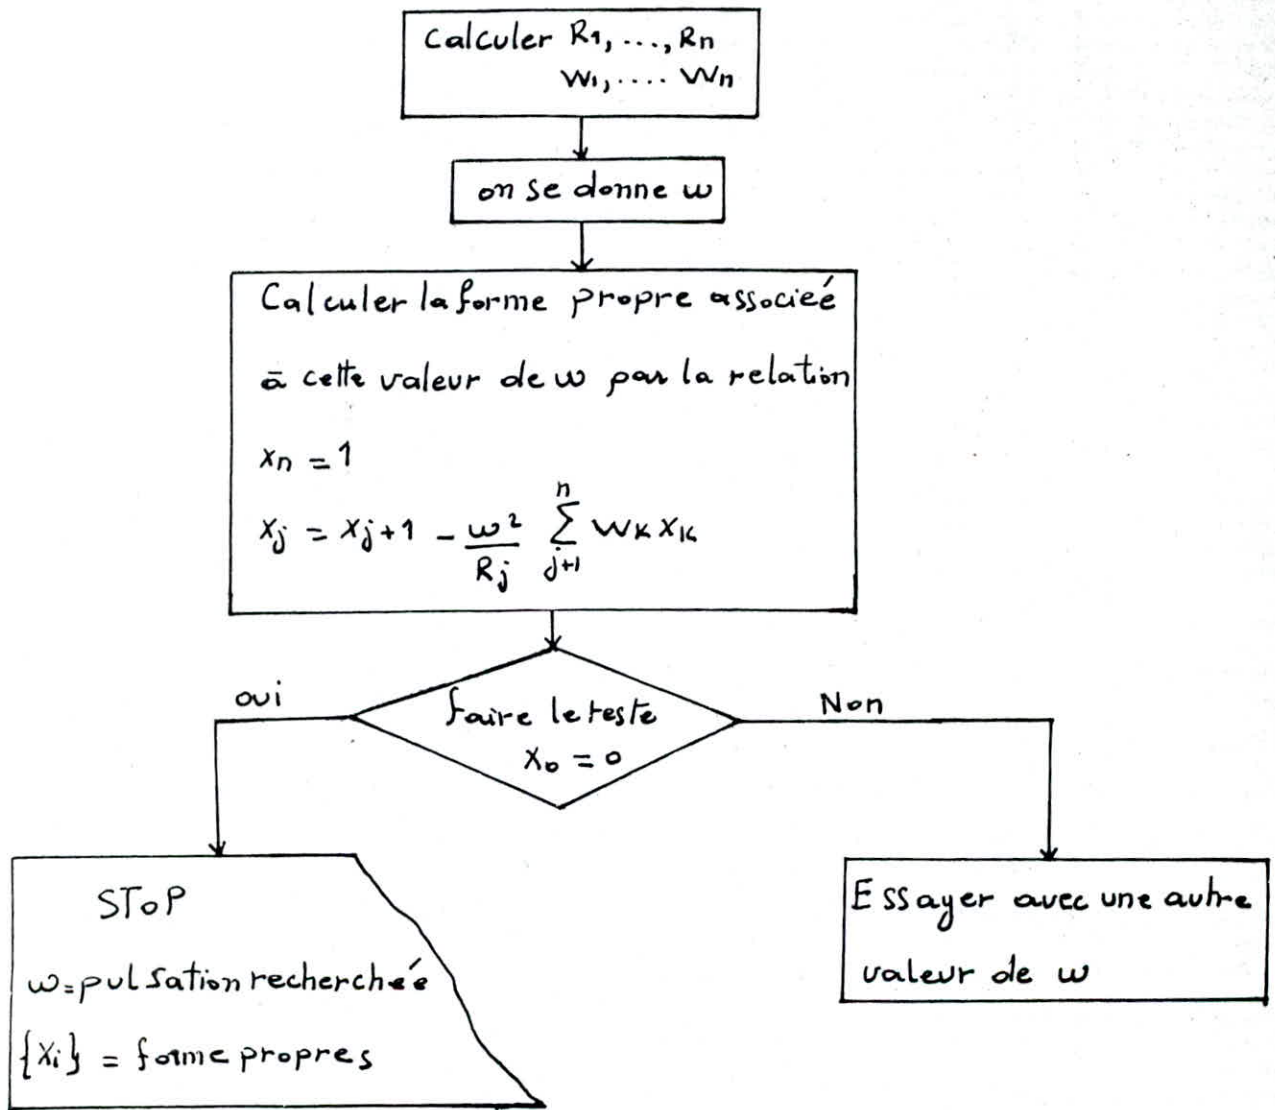 Calculer R1, ..., Rn
W1, .... Wn
on se donne ω
Calculer la forme propre associeé
à cette valeur de ω par la relation
xn = 1
xj = xj+1 - ω²/Rj ∑ⁿj+1 WK xK
oui
Non
faire le teste
X0 = 0
SToP
ω = pulsation recherchée
{Xi} = forme propres
Essayer avec une autre
valeur de ω